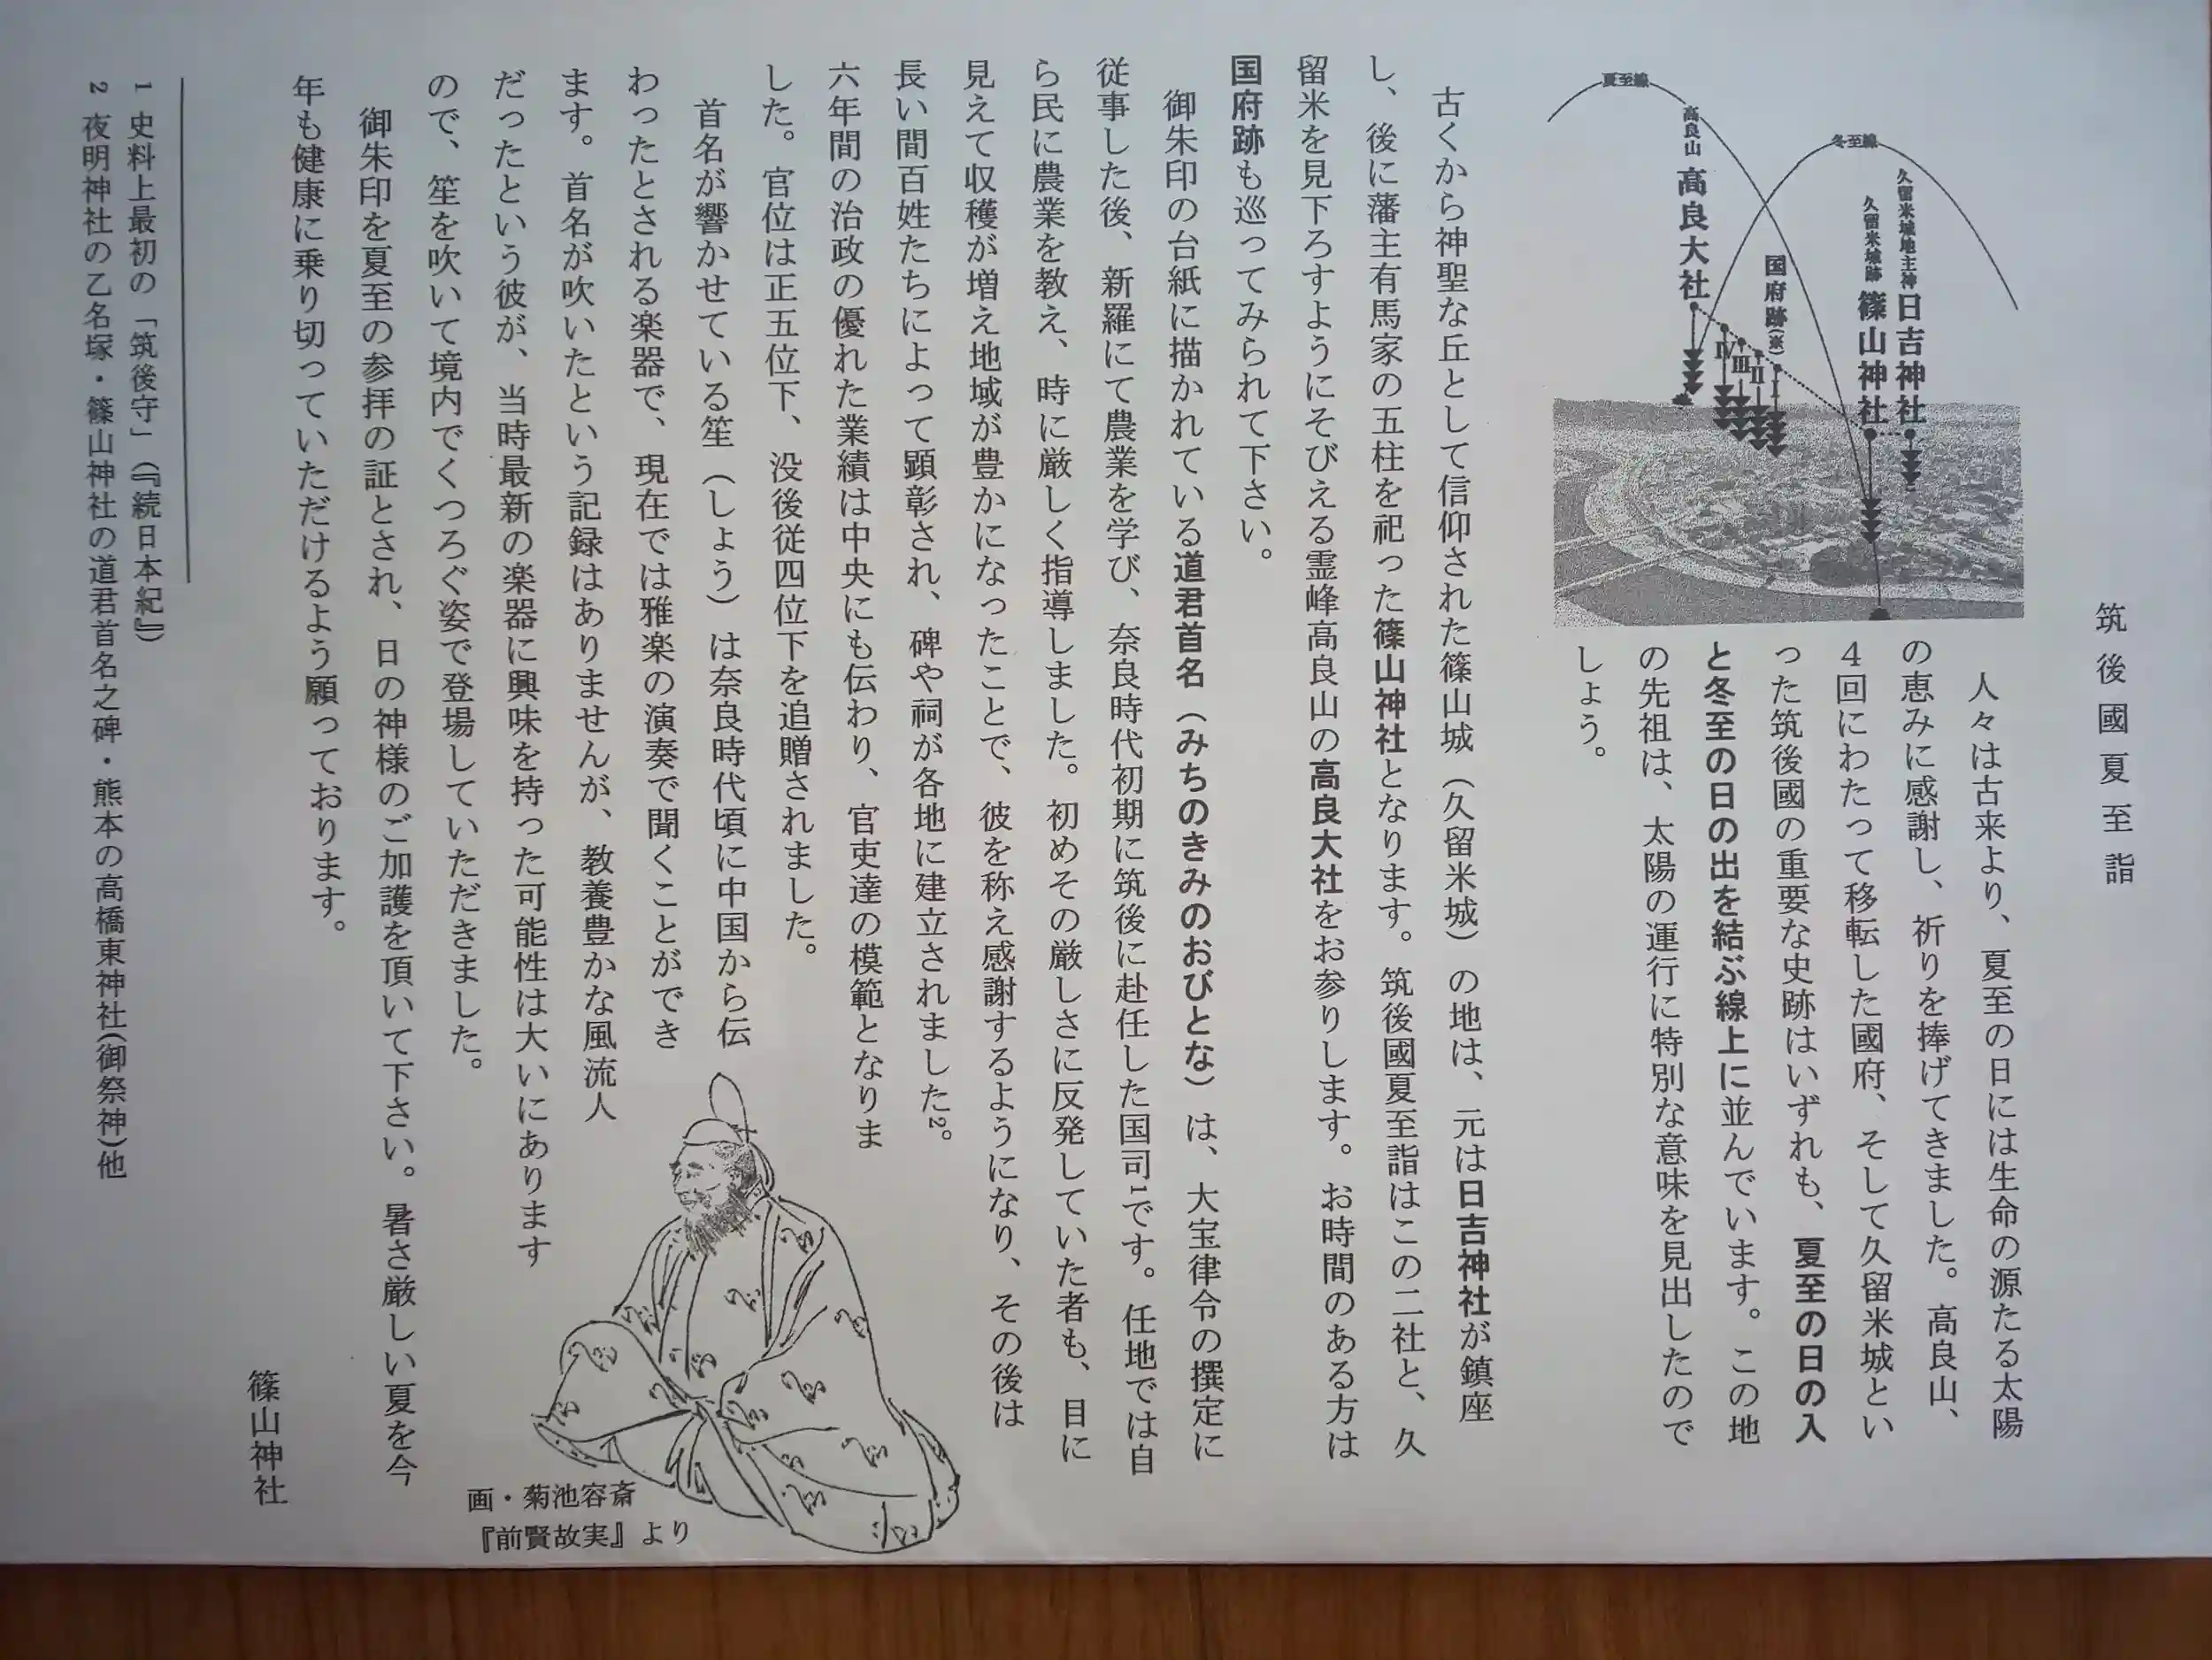 筑後國夏至詣
夏至線
冬至線
高良山
高良大社
国府跡(東)
Ⅳ
Ⅲ
Ⅱ
Ⅰ
久留米城地主神
日吉神社
久留米城跡
篠山神社
人々は古来より、夏至の日には生命の源たる太陽
の恵みに感謝し、祈りを捧げてきました。高良山、
4回にわたって移転した國府、そして久留米城とい
った筑後國の重要な史跡はいずれも、夏至の日の入
と冬至の日の出を結ぶ線上に並んでいます。この地
の先祖は、太陽の運行に特別な意味を見出したので
しょう。
古くから神聖な丘として信仰された篠山城（久留米城）の地は、元は日吉神社が鎮座
し、後に藩主有馬家の五柱を祀った篠山神社となります。筑後國夏至詣はこの二社と、久
留米を見下ろすようにそびえる霊峰高良山の高良大社をお参りします。お時間のある方は
国府跡も巡ってみられて下さい。
御朱印の台紙に描かれている道君首名（みちのきみのおびとな）は、大宝律令の撰定に
従事した後、新羅にて農業を学び、奈良時代初期に筑後に赴任した国司1です。任地では自
ら民に農業を教え、時に厳しく指導しました。初めその厳しさに反発していた者も、目に
見えて収穫が増え地域が豊かになったことで、彼を称え感謝するようになり、その後は
長い間百姓たちによって顕彰され、碑や祠が各地に建立されました2。
六年間の治政の優れた業績は中央にも伝わり、官吏達の模範となりま
した。官位は正五位下、没後従四位下を追贈されました。
首名が響かせている笙（しょう）は奈良時代頃に中国から伝
わったとされる楽器で、現在では雅楽の演奏で聞くことができ
ます。首名が吹いたという記録はありませんが、教養豊かな風流人
だったという彼が、当時最新の楽器に興味を持った可能性は大いにあります
ので、笙を吹いて境内でくつろぐ姿で登場していただきました。
御朱印を夏至の参拝の証とされ、日の神様のご加護を頂いて下さい。暑さ厳しい夏を今
年も健康に乗り切っていただけるよう願っております。
篠山神社
画・菊池容斎
『前賢故実』より
1 史料上最初の「筑後守」(『続日本紀』)
2 夜明神社の乙名塚・篠山神社の道君首名之碑・熊本の高橋東神社(御祭神)他